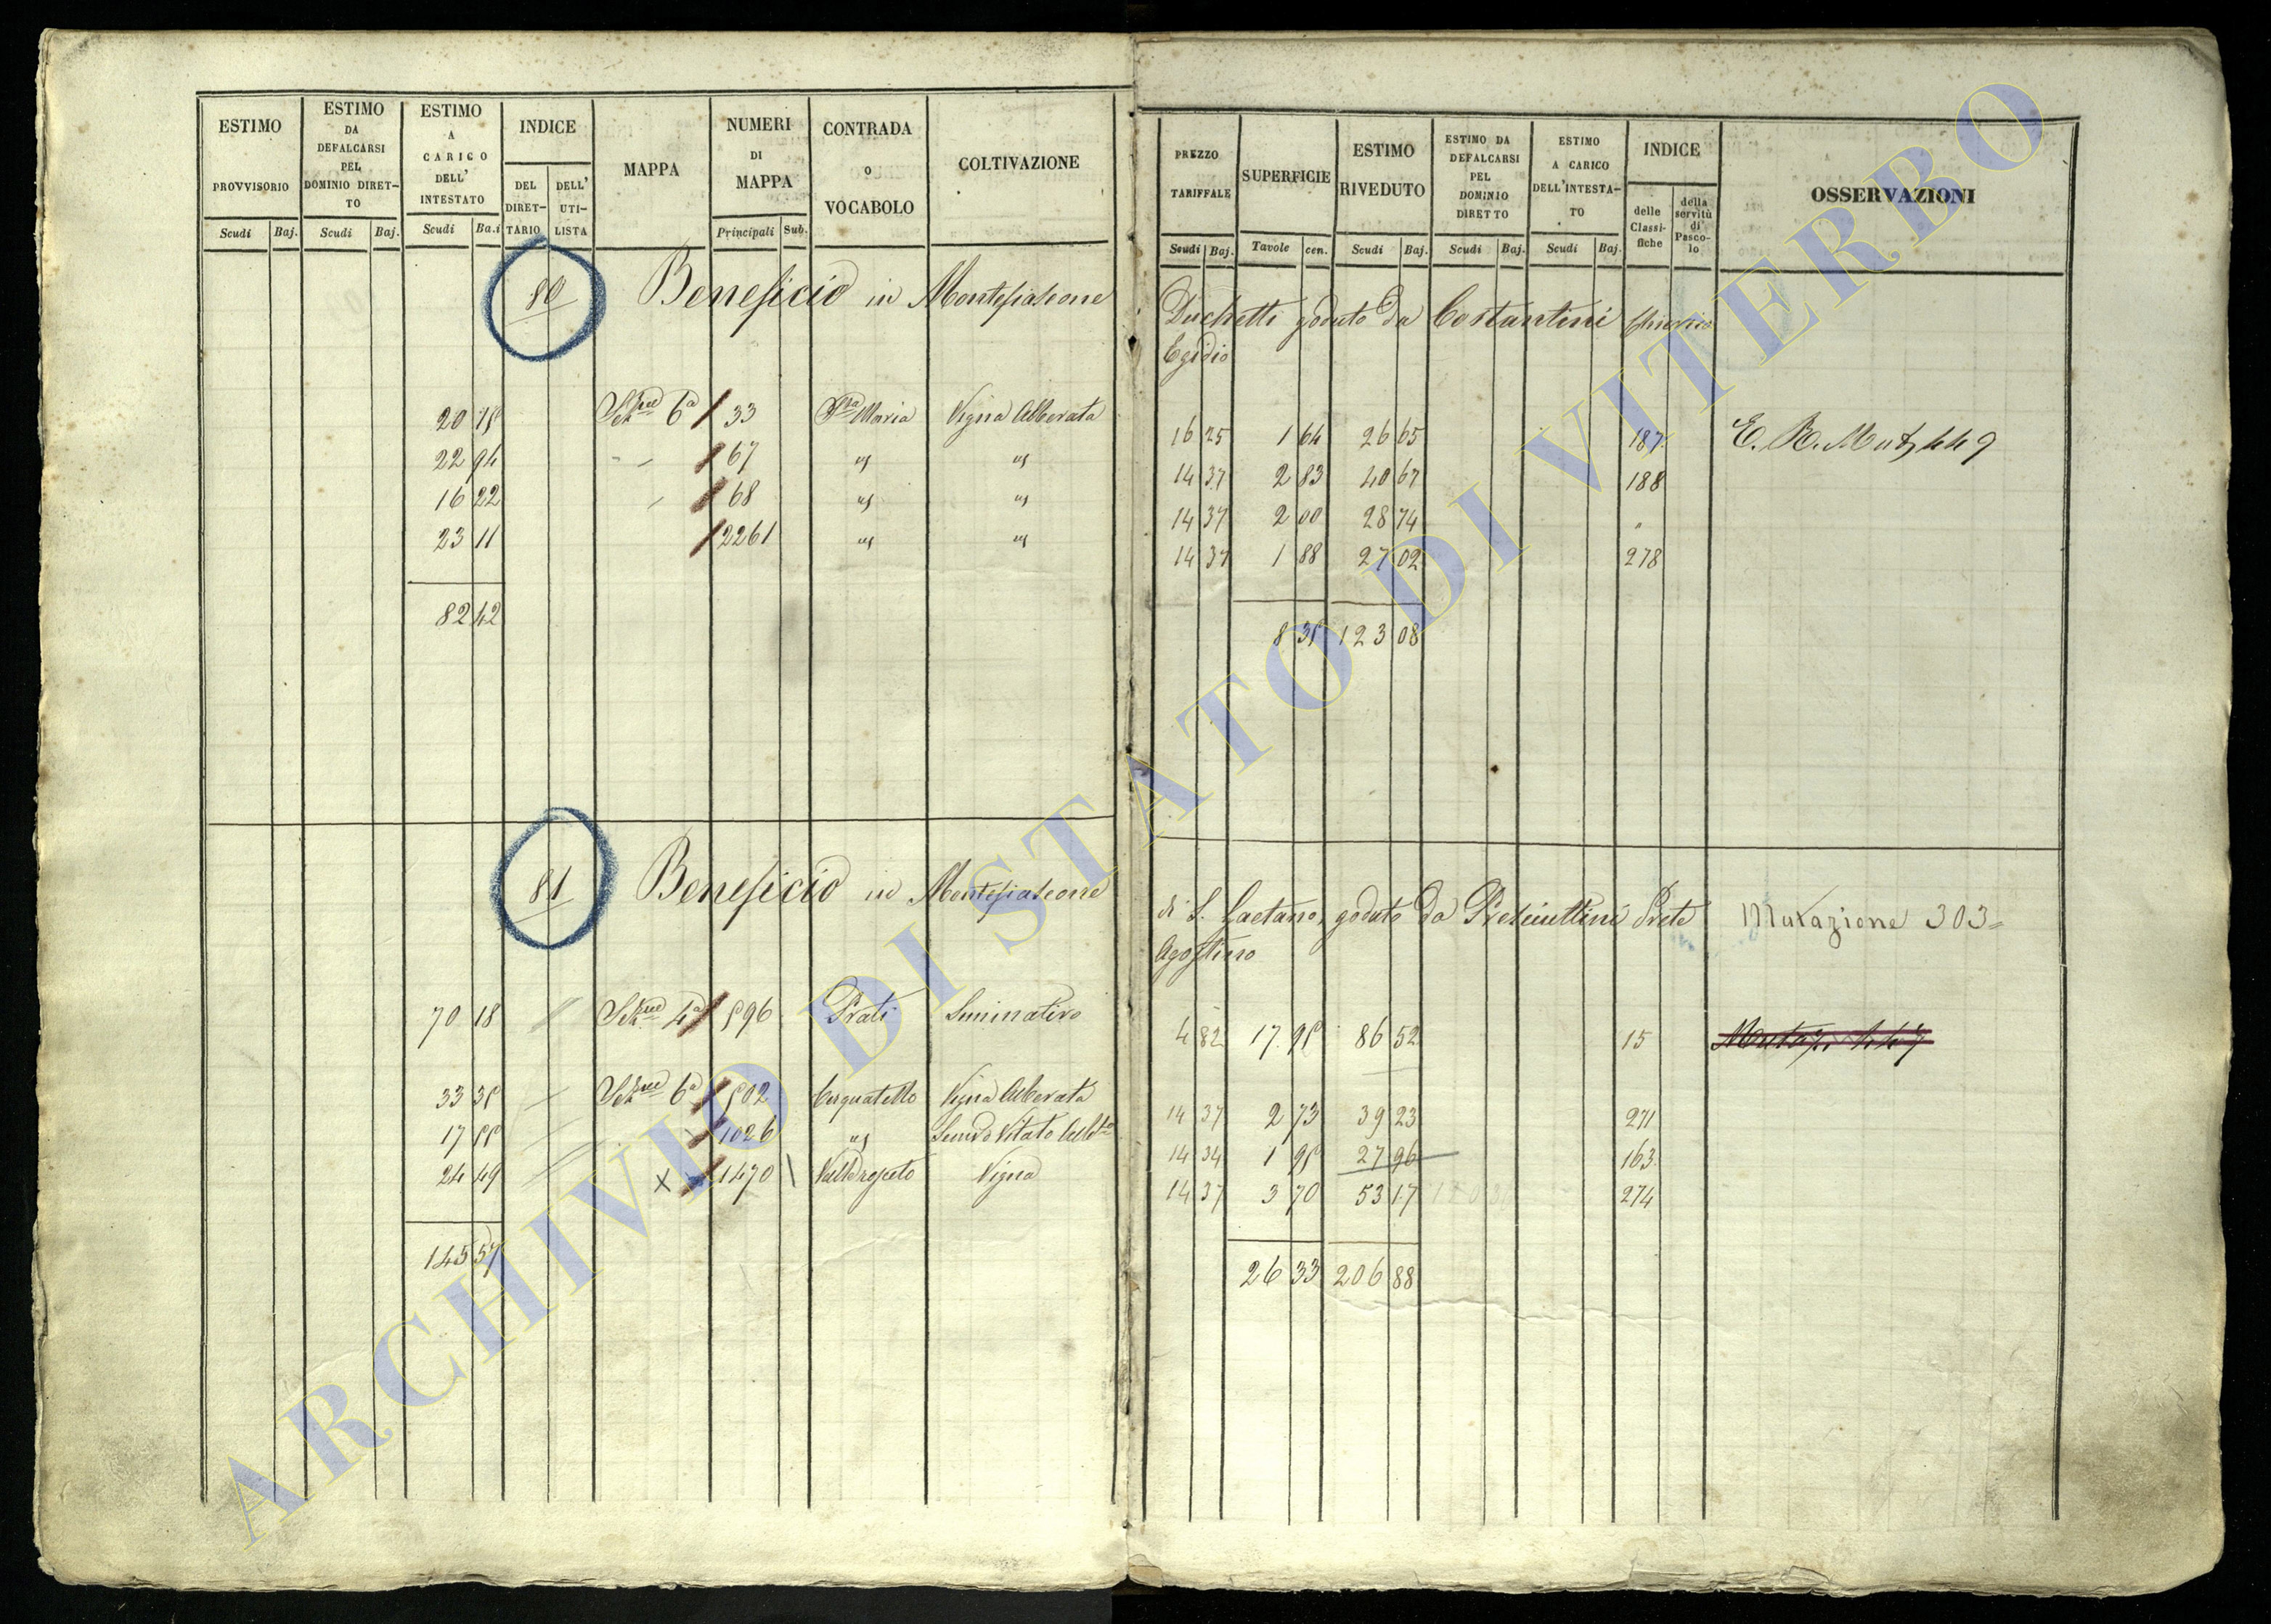 ESTIMO PROVVISORIO | ESTIMO DA DEFALCARSI PEL DOMINIO DIRETTO | ESTIMO A CARICO DELL' INTESTATO | INDICE | MAPPA | NUMERI DI MAPPA | CONTRADA O VOCABOLO | COLTIVAZIONE
DEL DIRETTARIO | DELL' UTILISTA
Scudi | Baj. | Scudi | Baj. | Scudi | Ba.i | Principali | Sub.
PREZZO TARIFFALE | SUPERFICIE | ESTIMO RIVEDUTO | ESTIMO DA DEFALCARSI PEL DOMINIO DIRETTO | ESTIMO A CARICO DELL'INTESTATO | INDICE | OSSERVAZIONI
delle Classifiche | della servitù di Pascolo
Scudi | Baj. | Tavole | cen. | Scudi | Baj. | Scudi | Baj. | Scudi | Baj.
80 Beneficio in Montefiascone Duchetti goduto da Costantini
Egidio
20 75 | Sezne 6a | 33 | Sta Maria | Vigna Alberata | 16 25 | 1 64 | 26 65 | 187 | E. R. Mutz 449
22 94 | 67 | " | " | 14 37 | 2 83 | 40 67 | 188
16 22 | 68 | " | " | 14 37 | 2 00 | 28 74 | "
23 11 | 2261 | " | " | 14 37 | 1 88 | 27 02 | 278
82 42 | 8 35 | 123 08
81 Beneficio in Montefiascone di S. Gaetano, goduto da Presciuttini Prete | Mutazione 303
Agostino
70 18 | Sezne 4a | 596 | Prati | Seminativo | 4 82 | 17 95 | 86 52 | 15
33 35 | Sezne 6a | 502 | Cerquatello | Vigna Alberata | 14 37 | 2 73 | 39 23 | 271
17 55 | 1026 | " | 14 34 | 1 95 | 27 96 | 163
24 49 | X | 1470 | Vigna | 14 37 | 3 70 | 53 17 | 274
145 57 | 26 33 | 206 88
ARCHIVIO DI STATO DI VITERBO